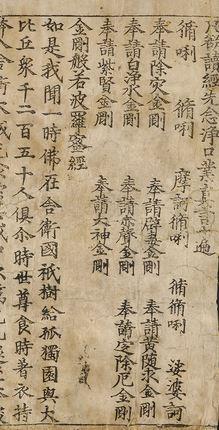 凡欲讀經先念淨口業真言一遍
脩唎 脩唎 摩訶脩唎 脩脩唎 娑婆訶
奉請除災金剛 奉請辟毒金剛 奉請黃隨求金剛
奉請白淨水金剛 奉請赤聲金剛 奉請定除厄金剛
奉請紫賢金剛 奉請大神金剛
金剛般若波羅蜜經
如是我聞一時佛在舍衛國祇樹給孤獨園與大
比丘眾千二百五十人俱尒時世尊食時著衣持